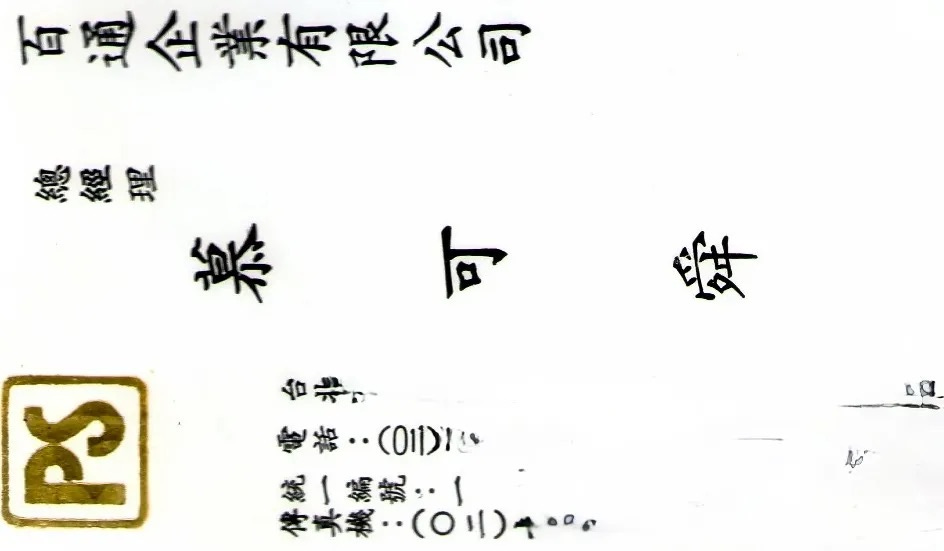 百通企業有限公司
總經理
慕可舜
PS
台北
電話：(〇二)二
統一編號：一
傳真機：(〇二)